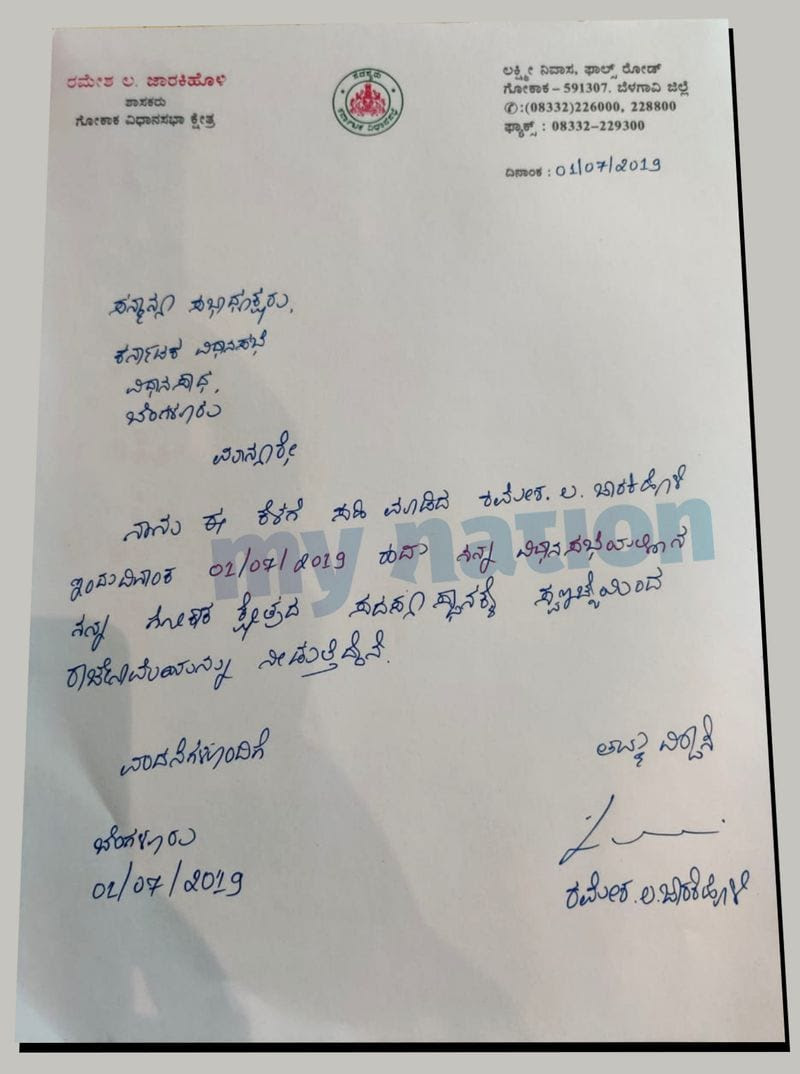 ರಮೇಶ ಲ. ಜಾರಕಿಹೊಳಿ
ಶಾಸಕರು
ಗೋಕಾಕ ವಿಧಾನಸಭಾ ಕ್ಷೇತ್ರ
ಸದಸ್ಯರು
ಕರ್ನಾಟಕ ವಿಧಾನಸಭೆ
ಲಕ್ಷ್ಮೀ ನಿವಾಸ, ಫಾಲ್ಸ್ ರೋಡ್
ಗೋಕಾಕ – 591307. ಬೆಳಗಾವಿ ಜಿಲ್ಲೆ
✆:(08332)226000, 228800
ಫ್ಯಾಕ್ಸ್ : 08332–229300
ದಿನಾಂಕ : 01/07/2019
ಸನ್ಮಾನ್ಯ ಸಭಾಧ್ಯಕ್ಷರು,
ಕರ್ನಾಟಕ ವಿಧಾನಸಭೆ
ವಿಧಾನಸೌಧ,
ಬೆಂಗಳೂರು
ಮಾನ್ಯರೇ,
ನಾನು ಈ ಕೆಳಗೆ ಸಹಿ ಮಾಡಿದ ರಮೇಶ. ಲ. ಜಾರಕಿಹೊಳಿ
ಇಂದು ದಿನಾಂಕ 01/07/2019 ರಂದು ನನ್ನ ವಿಧಾನಸಭೆಯಲ್ಲಿನ
ನನ್ನ ಗೋಕಾಕ ಕ್ಷೇತ್ರದ ಸದಸ್ಯ ಸ್ಥಾನಕ್ಕೆ ಸ್ವಇಚ್ಛೆಯಿಂದ
ರಾಜೀನಾಮೆಯನ್ನು ನೀಡುತ್ತಿದ್ದೇನೆ.
my nation
ವಂದನೆಗಳೊಂದಿಗೆ
ತಮ್ಮ ವಿಶ್ವಾಸಿ
ಬೆಂಗಳೂರು
01/07/2019
ರಮೇಶ.ಲ.ಜಾರಕಿಹೊಳಿ